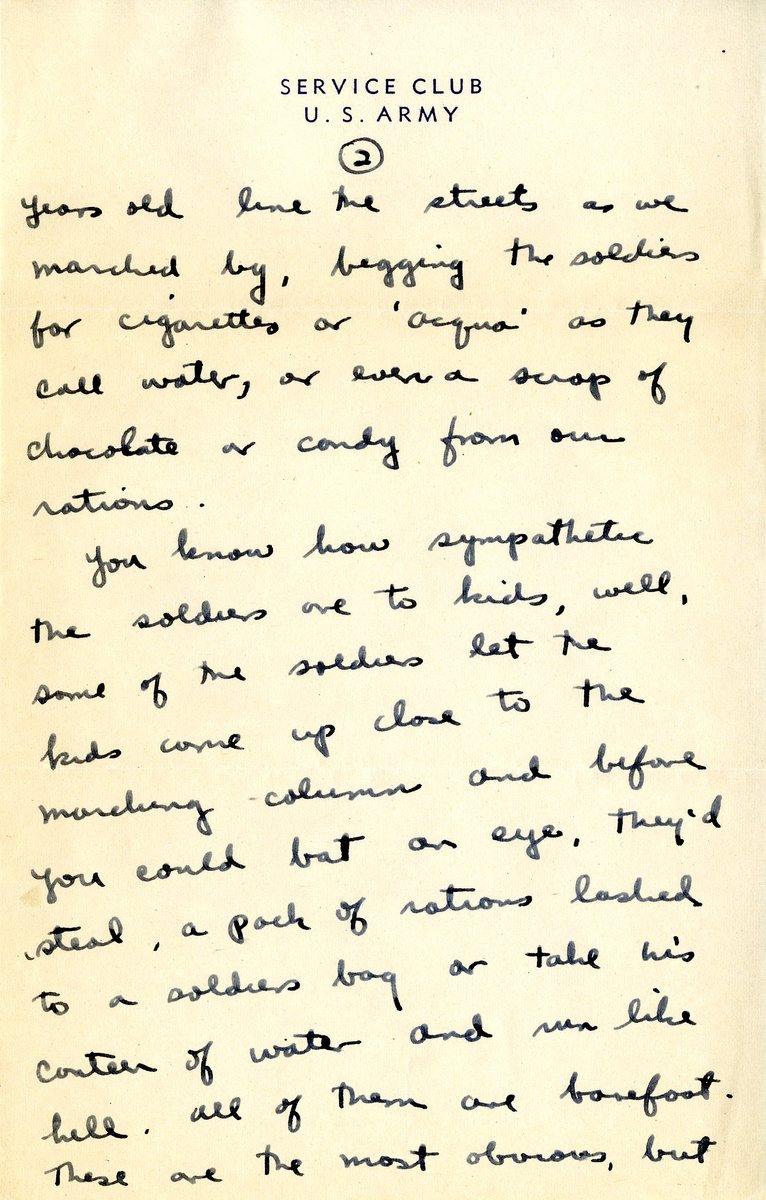 SERVICE CLUB
U. S. ARMY
2
years old line the streets as we
marched by, begging the soldiers
for cigarettes or 'acqua' as they
call water, or even a scrap of
chocolate or candy from our
rations.
You know how sympathetic
the soldiers are to kids, well,
some of the soldiers let the
kids come up close to the
marching column and before
you could bat an eye, they'd
steal, a pack of rations lashed
to a soldiers bag or take his
canteen of water and run like
hell. All of them are barefoot.
These are the most obvious, but